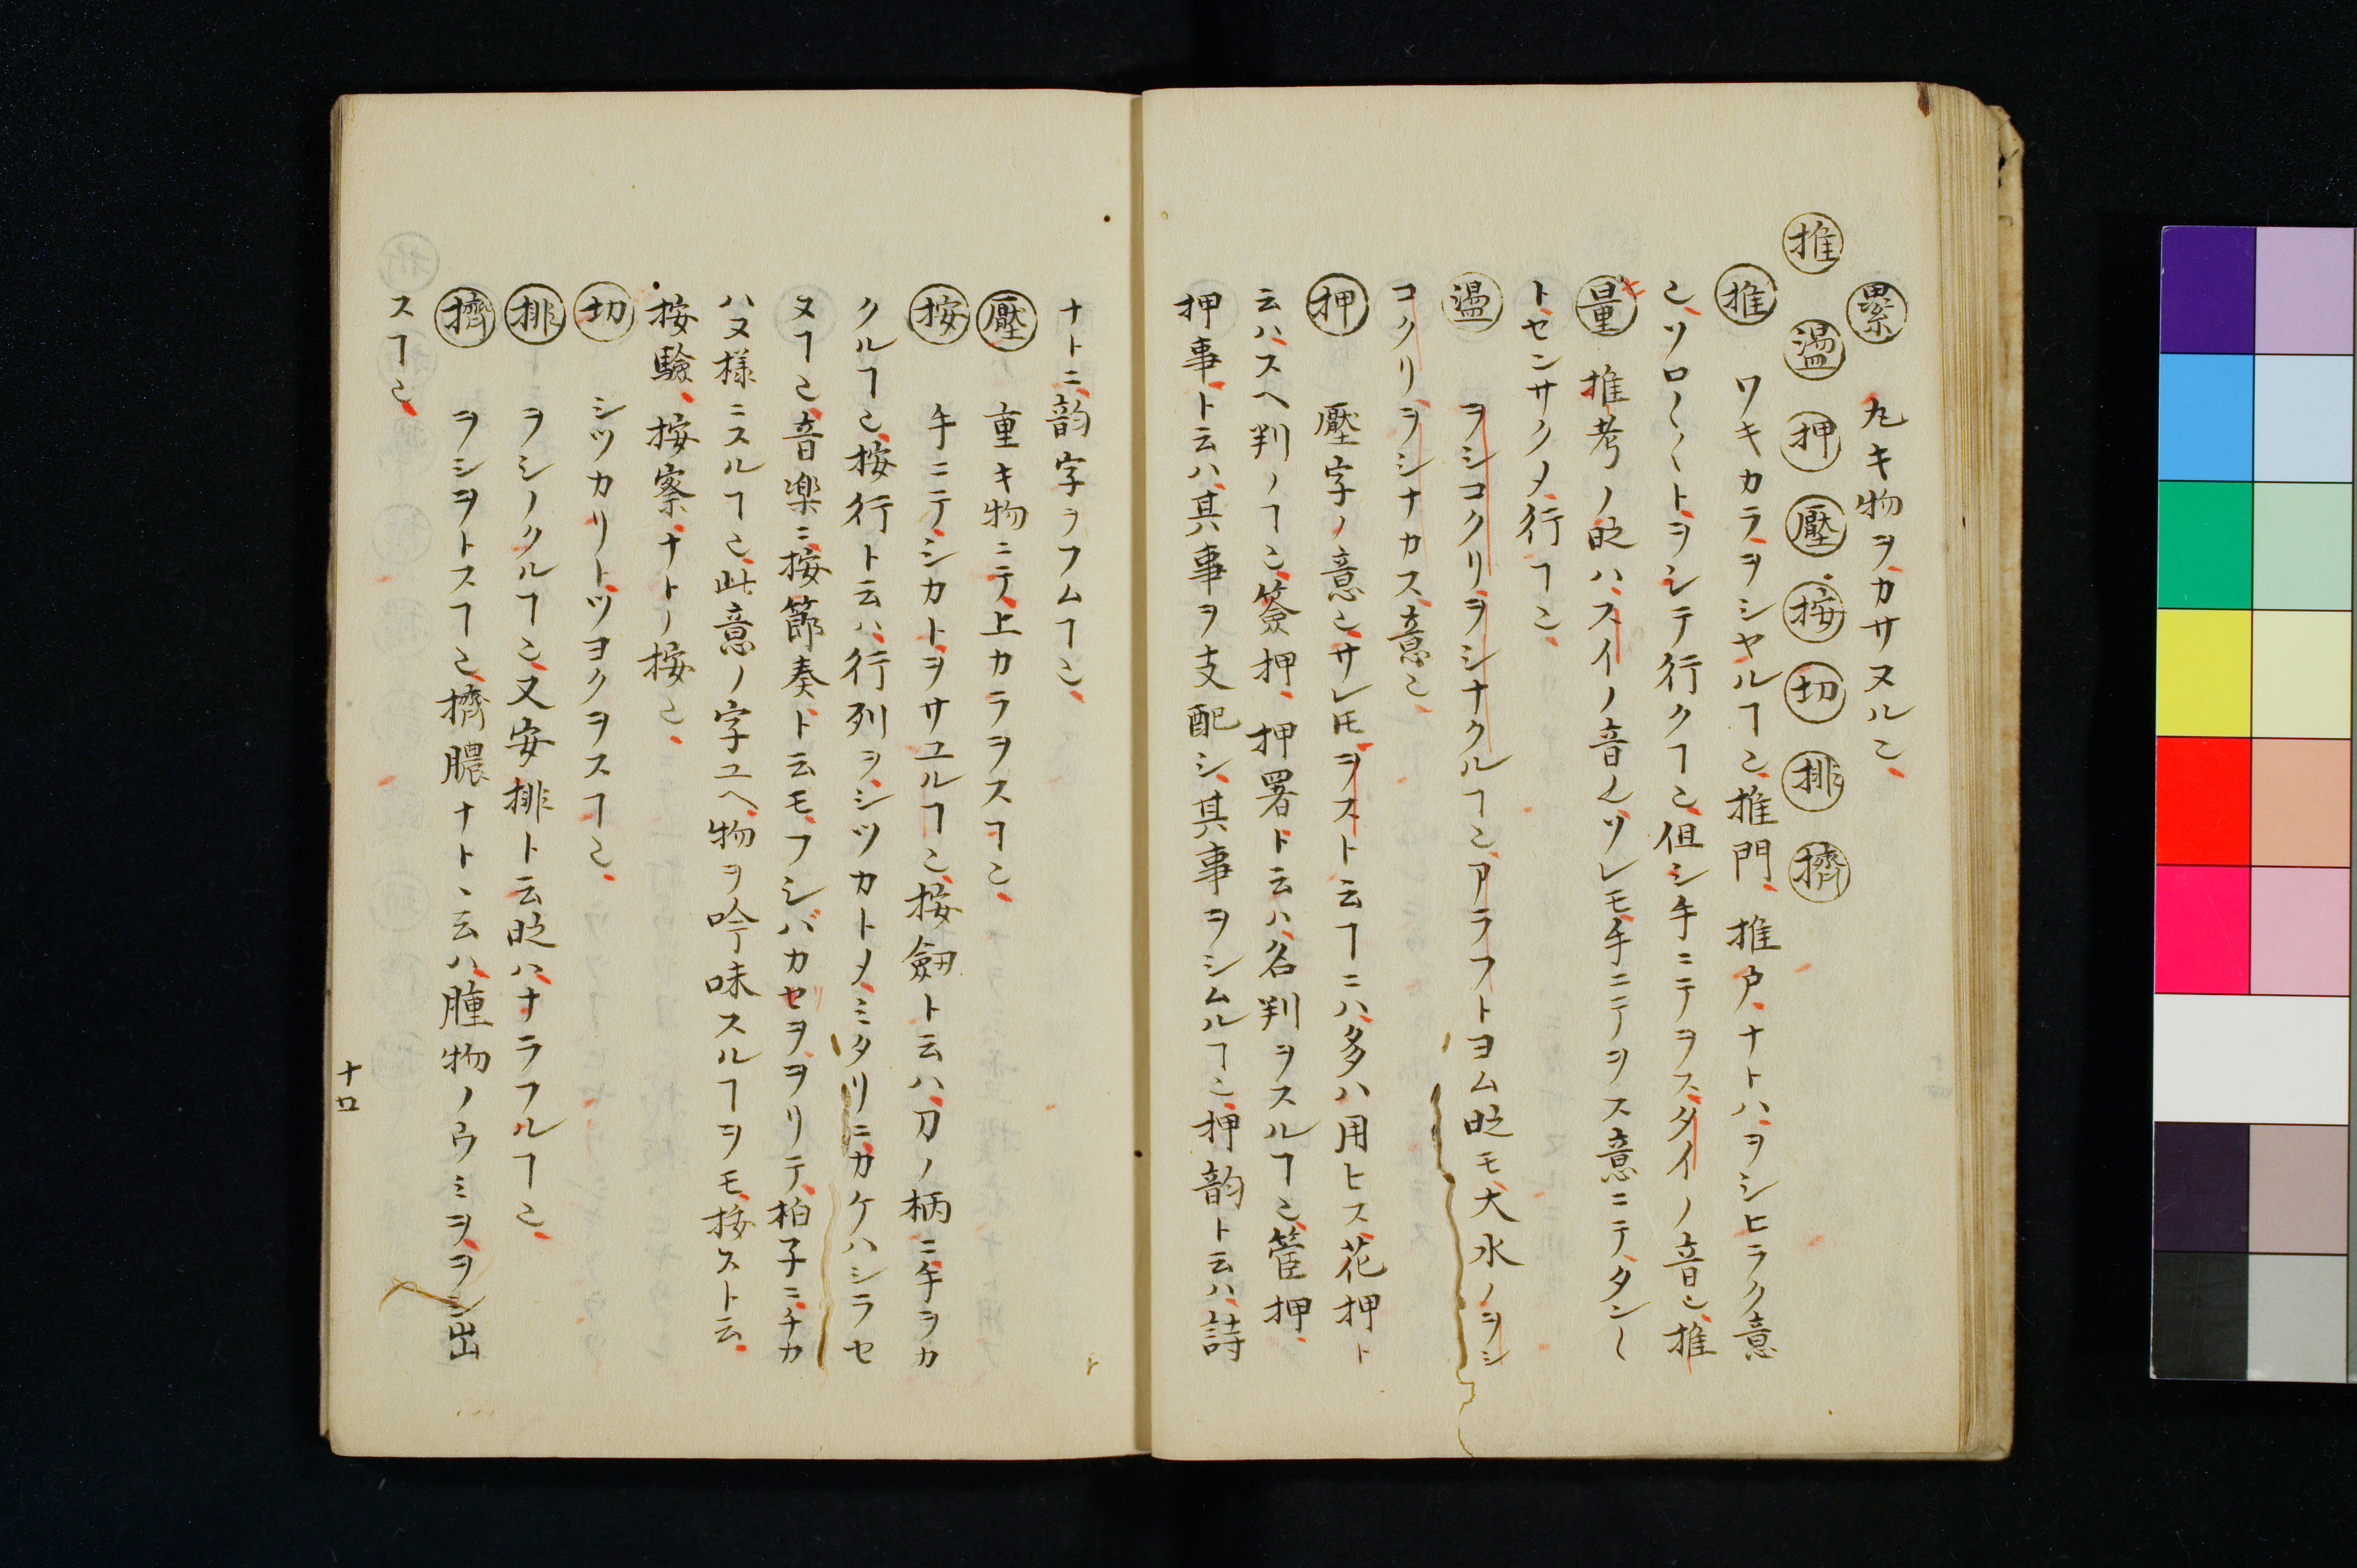 累 丸キ物ヲカサヌル𪜈
推 盪 押 壓 按 切 排 擠
推 ワキカラヲシヤルヿ也推門、推戸、ナトハヲシヒラク意
也ソロ〳〵トヲシテ行クヿ也但シ手ニテヲスタイノ音也推
量 推考ノ時ハスイノ音也ソレモ手ニテヲス意ニテタン〳〵
トセンサクメ行ヿ也
盪 ヲシコクリヲシナクルヿ也アラフトヨム時モ大水ノヲシ
コクリヲシナカス意也
押 壓字ノ意也サレ𪜈ヲスト云ヿニハ多ハ用ヒス花押ト
云ハスヘ判ノヿ也簽押、押署ト云ハ名判ヲスルヿ也管押、
押事ト云ハ其事ヲ支配シ其事ヲシムルヿ也押韵ト云ハ詩
ナトニ韵字ヲフムヿ也
壓 重キ物ニテ上カラヲスヿ也
按 手ニテシカトヲサユルヿ也按劔ト云ハ刀ノ柄ニ手ヲカ
クルヿ也按行ト云ハ行列ヲシツカトメミタリニカケハシラセ
ヌヿ也音楽ニ按節奏ト云モフシバカセヲヲリテ柏子ニチカ
ハヌ様ニスルヿ也此意ノ字ユヘ物ヲ吟味スルヿヲモ按スト云
按驗、按察ナトノ按也
切 シツカリトツヨクヲスヿ也
排 ヲシノクルヿ也又安排ト云時ハナラフルヿ也
擠 ヲシヲトスヿ也擠膿ナトヽ云ハ腫物ノウミヲヲシ出
スヿ也
十四